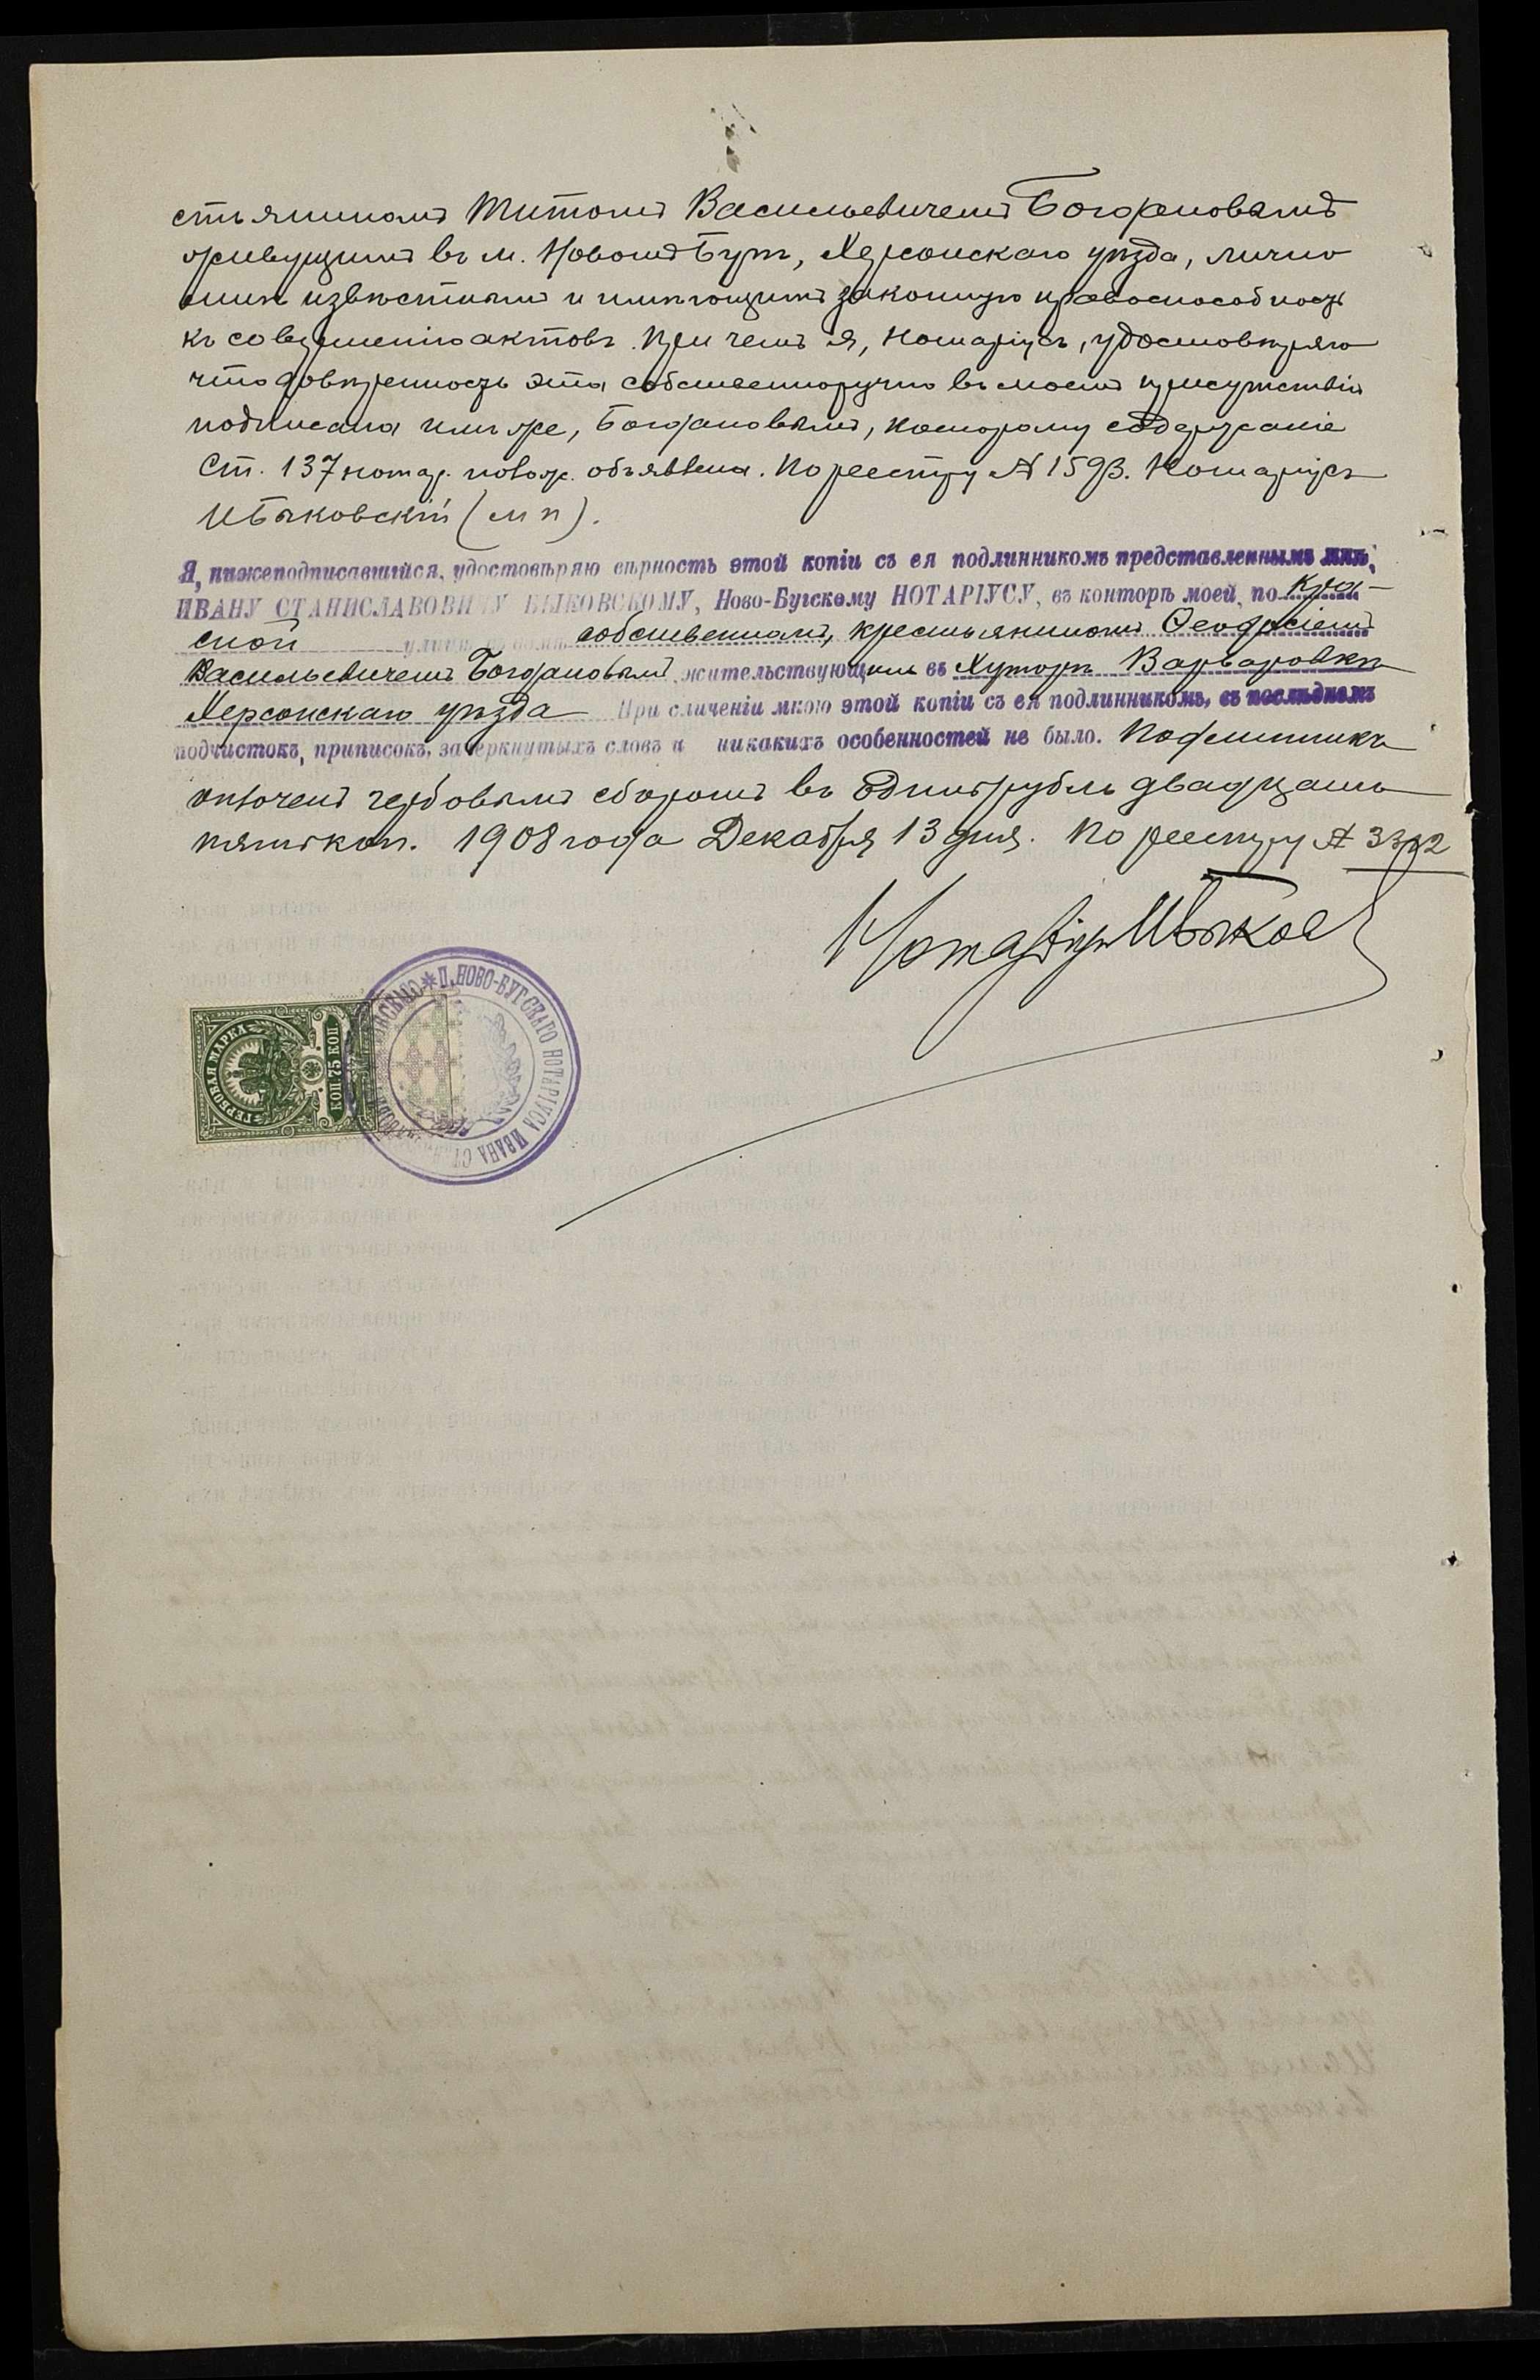 стьяниномъ Титомъ Васильевичемъ Богдановымъ
живущимъ въ м. Новомъ Бугѣ, Херсонскаго уѣзда, лично
мнѣ извѣстнымъ и имѣющимъ законную правоспособность
къ совершенію актовъ. При чемъ я, Нотаріусъ, удостовѣряю
что довѣренность эта собственноручно въ моемъ присутствіи
подписана имъ же, Богдановымъ, которому содержаніе
Ст. 137 нотар. полож. объявлена. По реестру № 1593. Нотаріусъ
ИБыковскій (м п).
Я, нижеподписавшійся, удостовѣряю вѣрность этой копіи съ ея подлинникомъ представленнымъ мнѣ,
ИВАНУ СТАНИСЛАВОВИЧУ БЫКОВСКОМУ, Ново-Бугскому НОТАРІУСУ, въ конторѣ моей, по Кра-
сной улицѣ въ домѣ собственномъ, крестьяниномъ Ѳеодосіемъ
Васильевичемъ Богдановымъ жительствующимъ въ Хуторѣ Варваровкѣ
Херсонскаго уѣзда При сличеніи мною этой копіи съ ея подлинникомъ, въ послѣднемъ
подчистокъ, приписокъ, зачеркнутыхъ словъ и никакихъ особенностей не было. Подлинникъ
оплоченъ гербовымъ сборомъ въ Одинъ рубль двадцать
пять коп. 1908 года Декабря 13 дня. По реестру №
Нотаріусъ ИБыков
ГЕРБОВАЯ МАРКА
КОП 75 КОП
П. НОВО-БУГСКАГО НОТАРІУСА ИВАНА